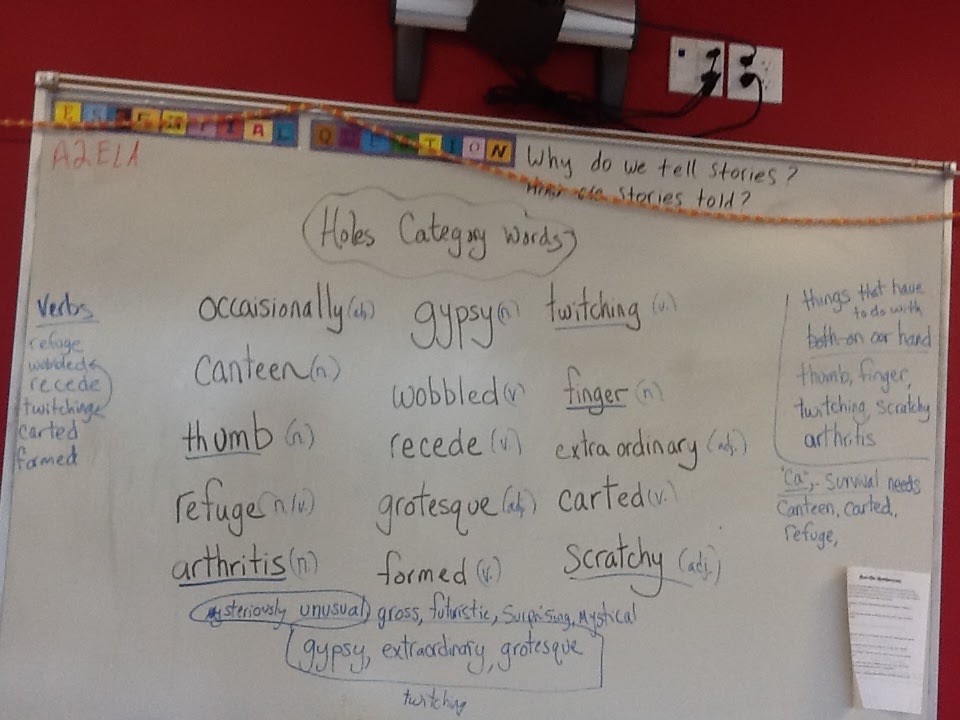 ESSENTIAL QUESTION
A2ELA
Why do we tell stories?
How are stories told?
Holes Category Words
Verbs
refuge
wobbled
recede
twitching
carted
formed
occaisionally (adj.)
gypsy (n)
twitching (v.)
canteen (n)
wobbled (v)
finger (n)
thumb (n)
recede (v.)
extraordinary (adj.)
refuge (n/v.)
grotesque (adj)
carted (v.)
arthritis (n.)
formed (v.)
Scratchy (adj.)
mysteriously unusual, gross, futuristic, Surprising, Mystical
gypsy, extraordinary, grotesque
twitching
things that have
to do with
both on our hand
thumb, finger,
twitching, scratchy
arthritis
"Ca", - Survival needs
Canteen, carted,
refuge,